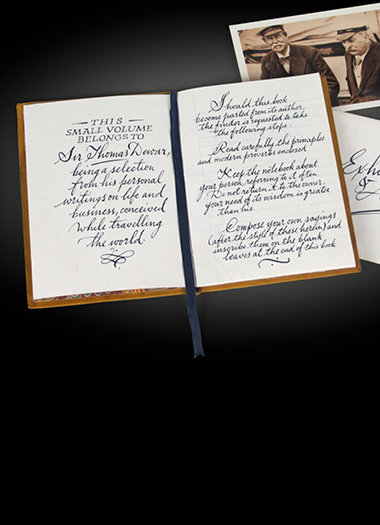 THIS
SMALL VOLUME
BELONGS TO
Sir Thomas Dewar,
being a selection
from his personal
writings on life and
business, conceived
while travelling
the world.
Should this book
become parted from its author,
the finder is requested to take
the following steps:
Read carefully the principles
and modern proverbs enclosed
Keep the notebook about
your person, referring to it often.
Do not return it to the owner,
your need of its wisdom is greater
than his.
Compose your own sayings
(after the style of these herein) and
inscribe them on the blank
leaves at the end of this book
&